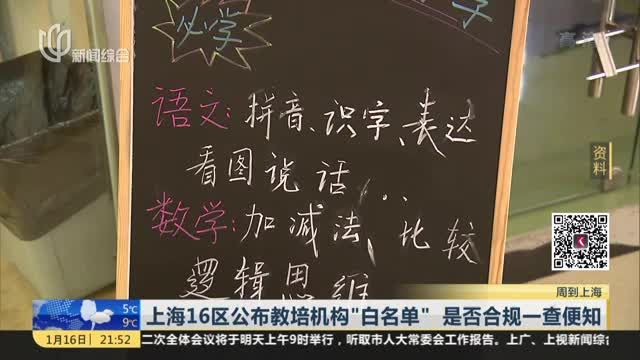 新闻综合
高清
必学
子
语文:拼音、识字、表达
看图说话...
数学:加减法、比较
逻辑思维
资料
周到上海
5℃
9℃
上海16区公布教培机构"白名单" 是否合规一查便知
1月16日 21:52
二次全体会议将于明天上午9时举行，听取市人大常委会工作报告。上广、上视新闻综合